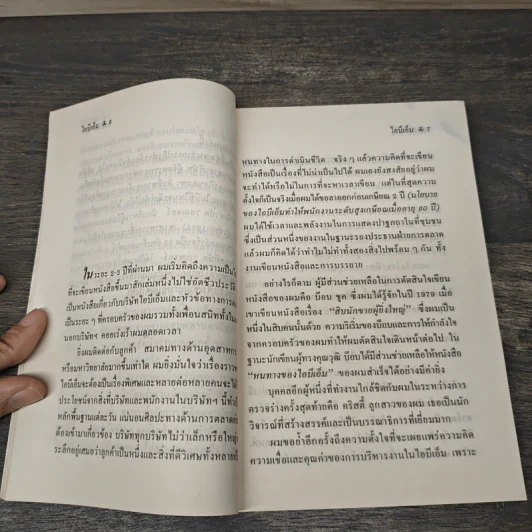 ไอบีเอ็ม 6
ใน ระยะ ๒-๓ ปีที่ผ่านมา ผมเริ่มคิดถึงความเป็นไป
ที่จะเขียนหนังสือขึ้นมาสักเล่มหนึ่งไม่ใช่อัตชีวประวัติ
เป็นหนังสือเกี่ยวกับบริษัทไอบีเอ็มและหัวข้อทางการตลาด
เป็นระยะ ๆ ที่ครอบครัวของผมรวมทั้งเพื่อนสนิททั้งใน
นอกบริษัทฯ คอยเร่งเร้าผมตลอดเวลา
ยิ่งผมติดต่อกับลูกค้า สมาคมทางด้านอุตสาหกร
หรือมหาวิทยาลัยมากขึ้นเท่าใด ผมยิ่งมั่นใจว่าเรื่องราว
ไอบีเอ็มจะต้องเป็นเรื่องพิเศษและหลายต่อหลายคนจะได้
ประโยชน์จากสิ่งที่บริษัทและพนักงานในบริษัทฯ นี้ทำ
หลักพื้นฐานแต่ละวัน แน่นอนศิลปะทางด้านการตลาดย่อ
ต้องเข้ามาเกี่ยวข้อง บริษัททุกบริษัทไม่ว่าเล็กหรือใหญ่
ระลึกอยู่เสมอว่าลูกค้าเป็นหนึ่งและสิ่งที่ดีวิเศษทั้งหลาย
ไอบีเอ็ม 7
หนทางในการดำเนินชีวิต จริง ๆ แล้วความคิดที่จะเขียน
หนังสือเป็นเรื่องที่ไม่น่าเป็นไปได้ ผมเองยังสงสัยอยู่ว่าผม
จะทำได้หรือไม่ในการที่จะหาเวลาเขียน แต่ในที่สุดความ
ตั้งใจก็เป็นจริงเมื่อผมได้ขอลาออกก่อนเกษียณ ๑ ปี (นโยบาย
ของไอบีเอ็มทำให้พนักงานระดับสูงเกษียณเมื่ออายุ ๖๐ ปี)
ผมได้ใช้เวลาและพลังงานในการแสดงปาฐกถาในที่ชุมชน
ซึ่งเป็นส่วนหนึ่งของงานในฐานะรองประธานฝ่ายการตลาด
แล้วผมก็คิดได้ว่าทำไมไม่ทำทั้งสองสิ่งไปพร้อม ๆ กัน ทั้ง
งานเขียนหนังสือและการบรรยาย
อย่างไรก็ตาม ผู้มีส่วนช่วยเหลือในการตัดสินใจเขียน
หนังสือของผมคือ บ๊อบ ชุค ซึ่งผมได้รู้จักในปี 1979 เมื่อ
เขาเขียนหนังสือเรื่อง "สิบนักขายผู้ยิ่งใหญ่" ซึ่งผมเป็น
หนึ่งในสิบคนนั้นด้วย ความริเริ่มของบ๊อบและการให้กำลังใจ
จากครอบครัวของผมทำให้ผมตัดสินใจเดินหน้าต่อไป ใน
ฐานะนักเขียนผู้ทรงคุณวุฒิ บ๊อบได้มีส่วนช่วยเหลือให้หนังสือ
"หนทางของไอบีเอ็ม" ของผมสำเร็จได้อย่างดีคำยิ่ง
บุคคลอีกผู้หนึ่งที่ทำงานใกล้ชิดกับผมในระหว่างการ
ตรวจร่างครั้งสุดท้ายคือ คริสตี้ ลูกสาวของผม เธอเป็นนัก
วิจารณ์ที่สร้างสรรค์และเป็นบรรณาธิการที่เยี่ยมมาก
ผมขอย้ำอีกครั้งถึงความตั้งใจที่จะเผยแพร่ความคิด
ความเชื่อและคุณค่าของการบริหารงานในไอบีเอ็ม เพราะ